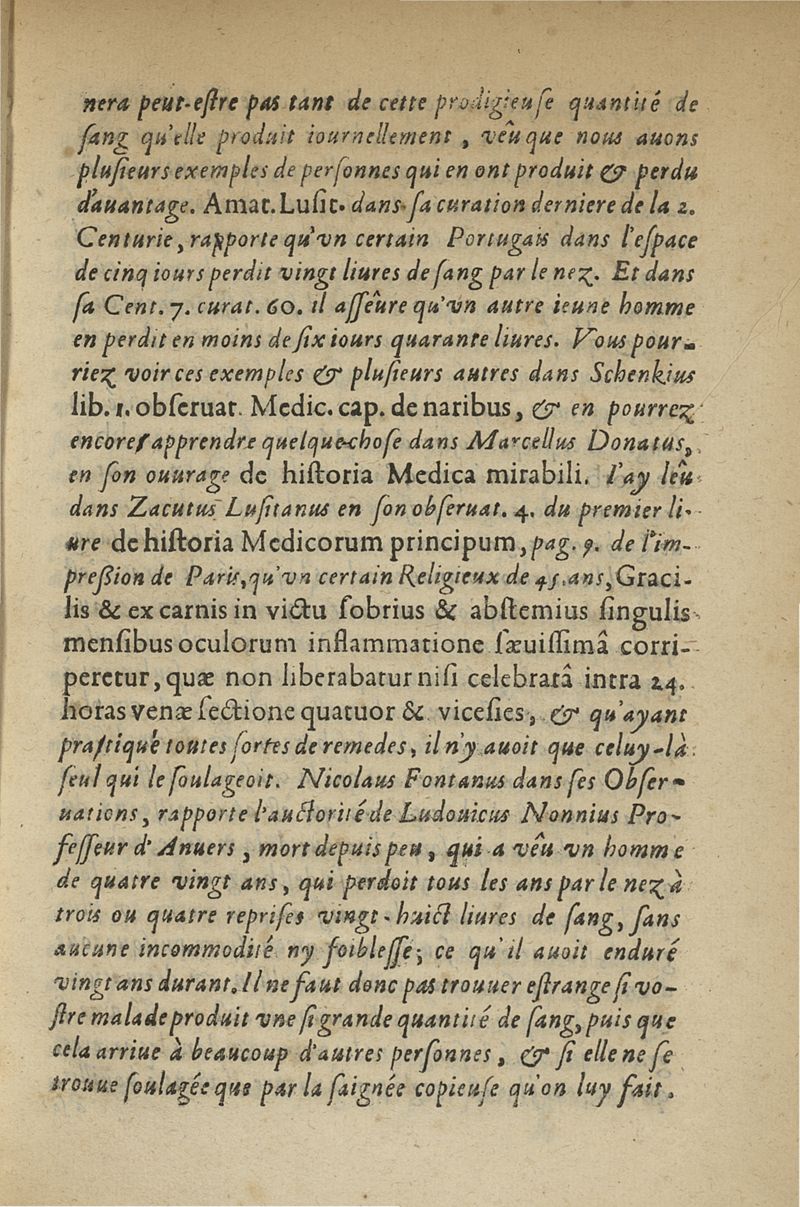 nera peut-eſtre pas tant de cette prodigieuſe quantité de
ſang qu'elle produit iournellement, vêu que nous auons
pluſieurs exemples de perſonnes qui en ont produit & perdu
d'auantage. Amat. Luſit. dans ſa curation derniere de la 2.
Centurie, rapporte qu'vn certain Portugais dans l'eſpace
de cinq iours perdit vingt liures de ſang par le nez. Et dans
ſa Cent. 7. curat. 60. il aſſêure qu'vn autre ieune homme
en perdit en moins de ſix iours quarante liures. Vous pour-
riez voir ces exemples & pluſieurs autres dans Schenkius
lib. 1. obſeruat. Medic. cap. de naribus, & en pourrez
encores apprendre quelque choſe dans Marcellus Donatus,
en ſon ouurage de hiſtoria Medica mirabili. I'ay leû
dans Zacutus Luſitanus en ſon obſeruat. 4. du premier li-
ure de hiſtoria Medicorum principum, pag. 9. de l'im-
preſſion de Paris, qu'vn certain Religieux de 45. ans, Graci-
lis & ex carnis in victu ſobrius & abſtemius ſingulis
menſibus oculorum inflammatione ſæuiſſimâ corri-
peretur, quæ non liberabatur niſi celebratâ intra 24.
horas venæ ſectione quatuor & viceſies, & qu'ayant
practiqué toutes ſortes de remedes, il n'y auoit que celuy-là
ſeul qui le ſoulageoit. Nicolaus Fontanus dans ſes Obſer-
uations, rapporte l'auctorité de Ludouicus Nonnius Pro-
feſſeur d'Anuers, mort depuis peu, qui a vêu vn homme
de quatre vingt ans, qui perdoit tous les ans par le nez à
trois ou quatre repriſes vingt-huict liures de ſang, ſans
aucune incommodité ny foibleſſe; ce qu'il auoit enduré
vingt ans durant. Il ne faut donc pas trouuer eſtrange ſi vo-
ſtre malade produit vne ſi grande quantité de ſang, puis que
cela arriue à beaucoup d'autres perſonnes, & ſi elle ne ſe
trouue ſoulagée que par la ſaignée copieuſe qu'on luy fait.